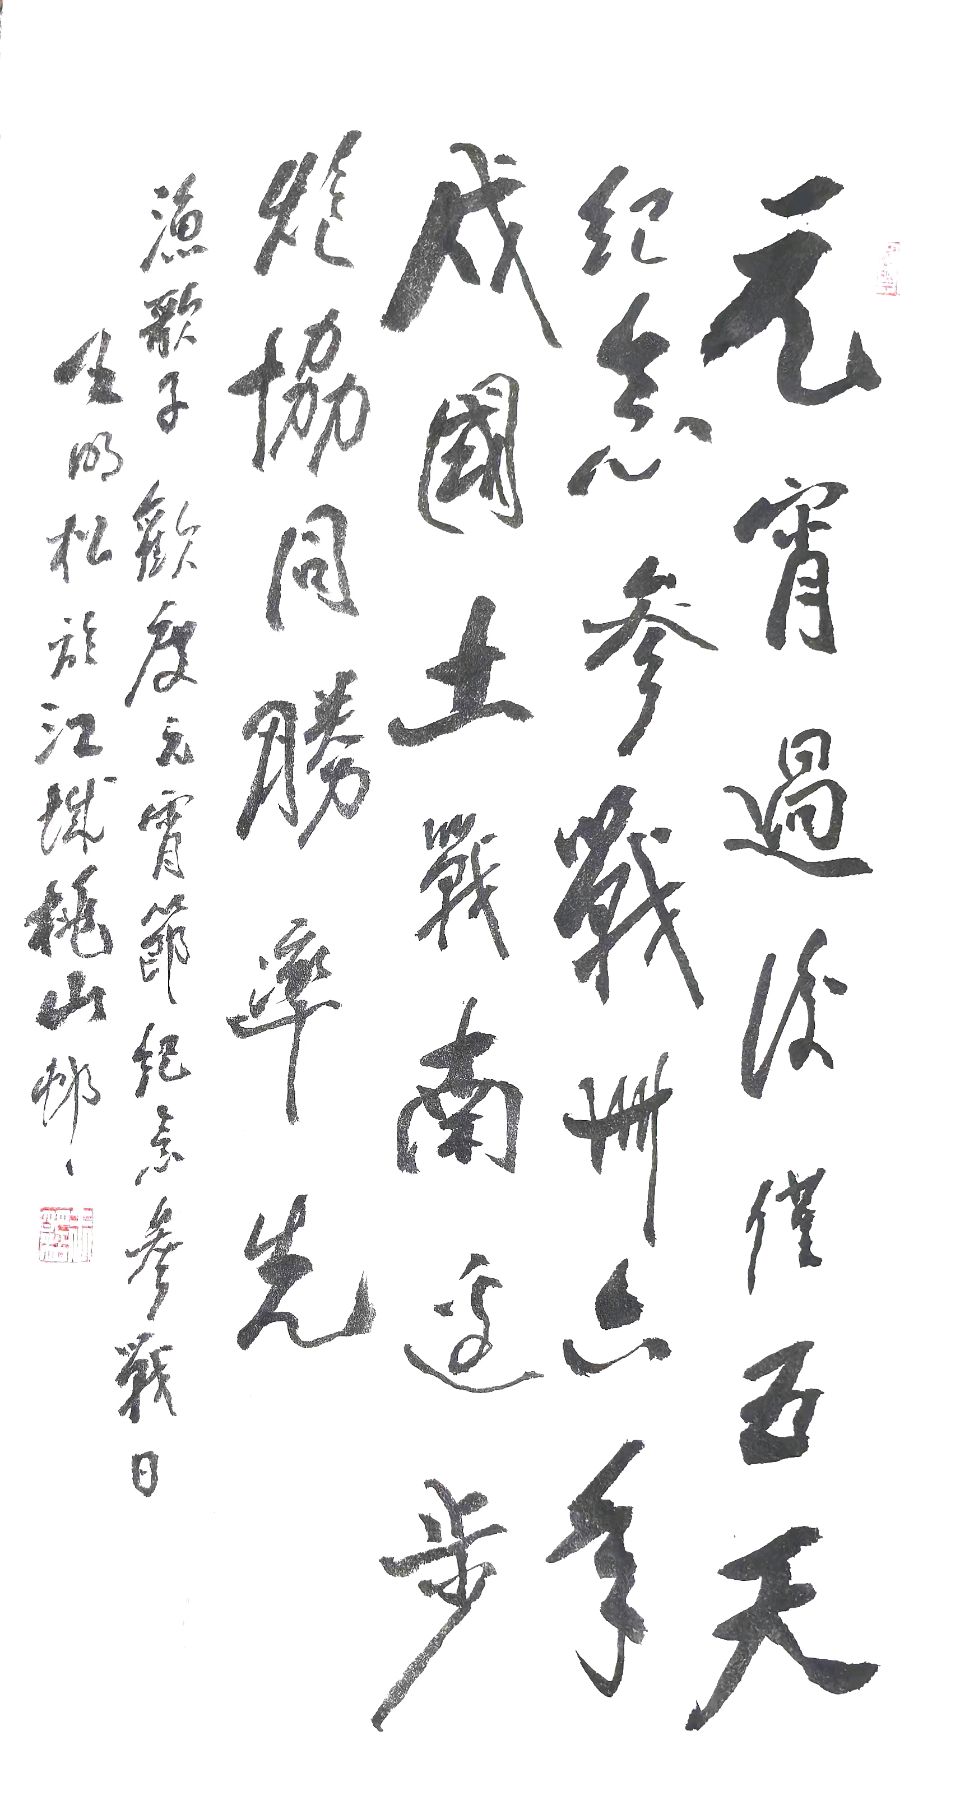 元宵過後僅五天
紀念參戰卌六年
戍國土戰南邊步
炮協同勝率先
漁歌子歡度元宵節紀念參戰日
王明松於江城桃山邨